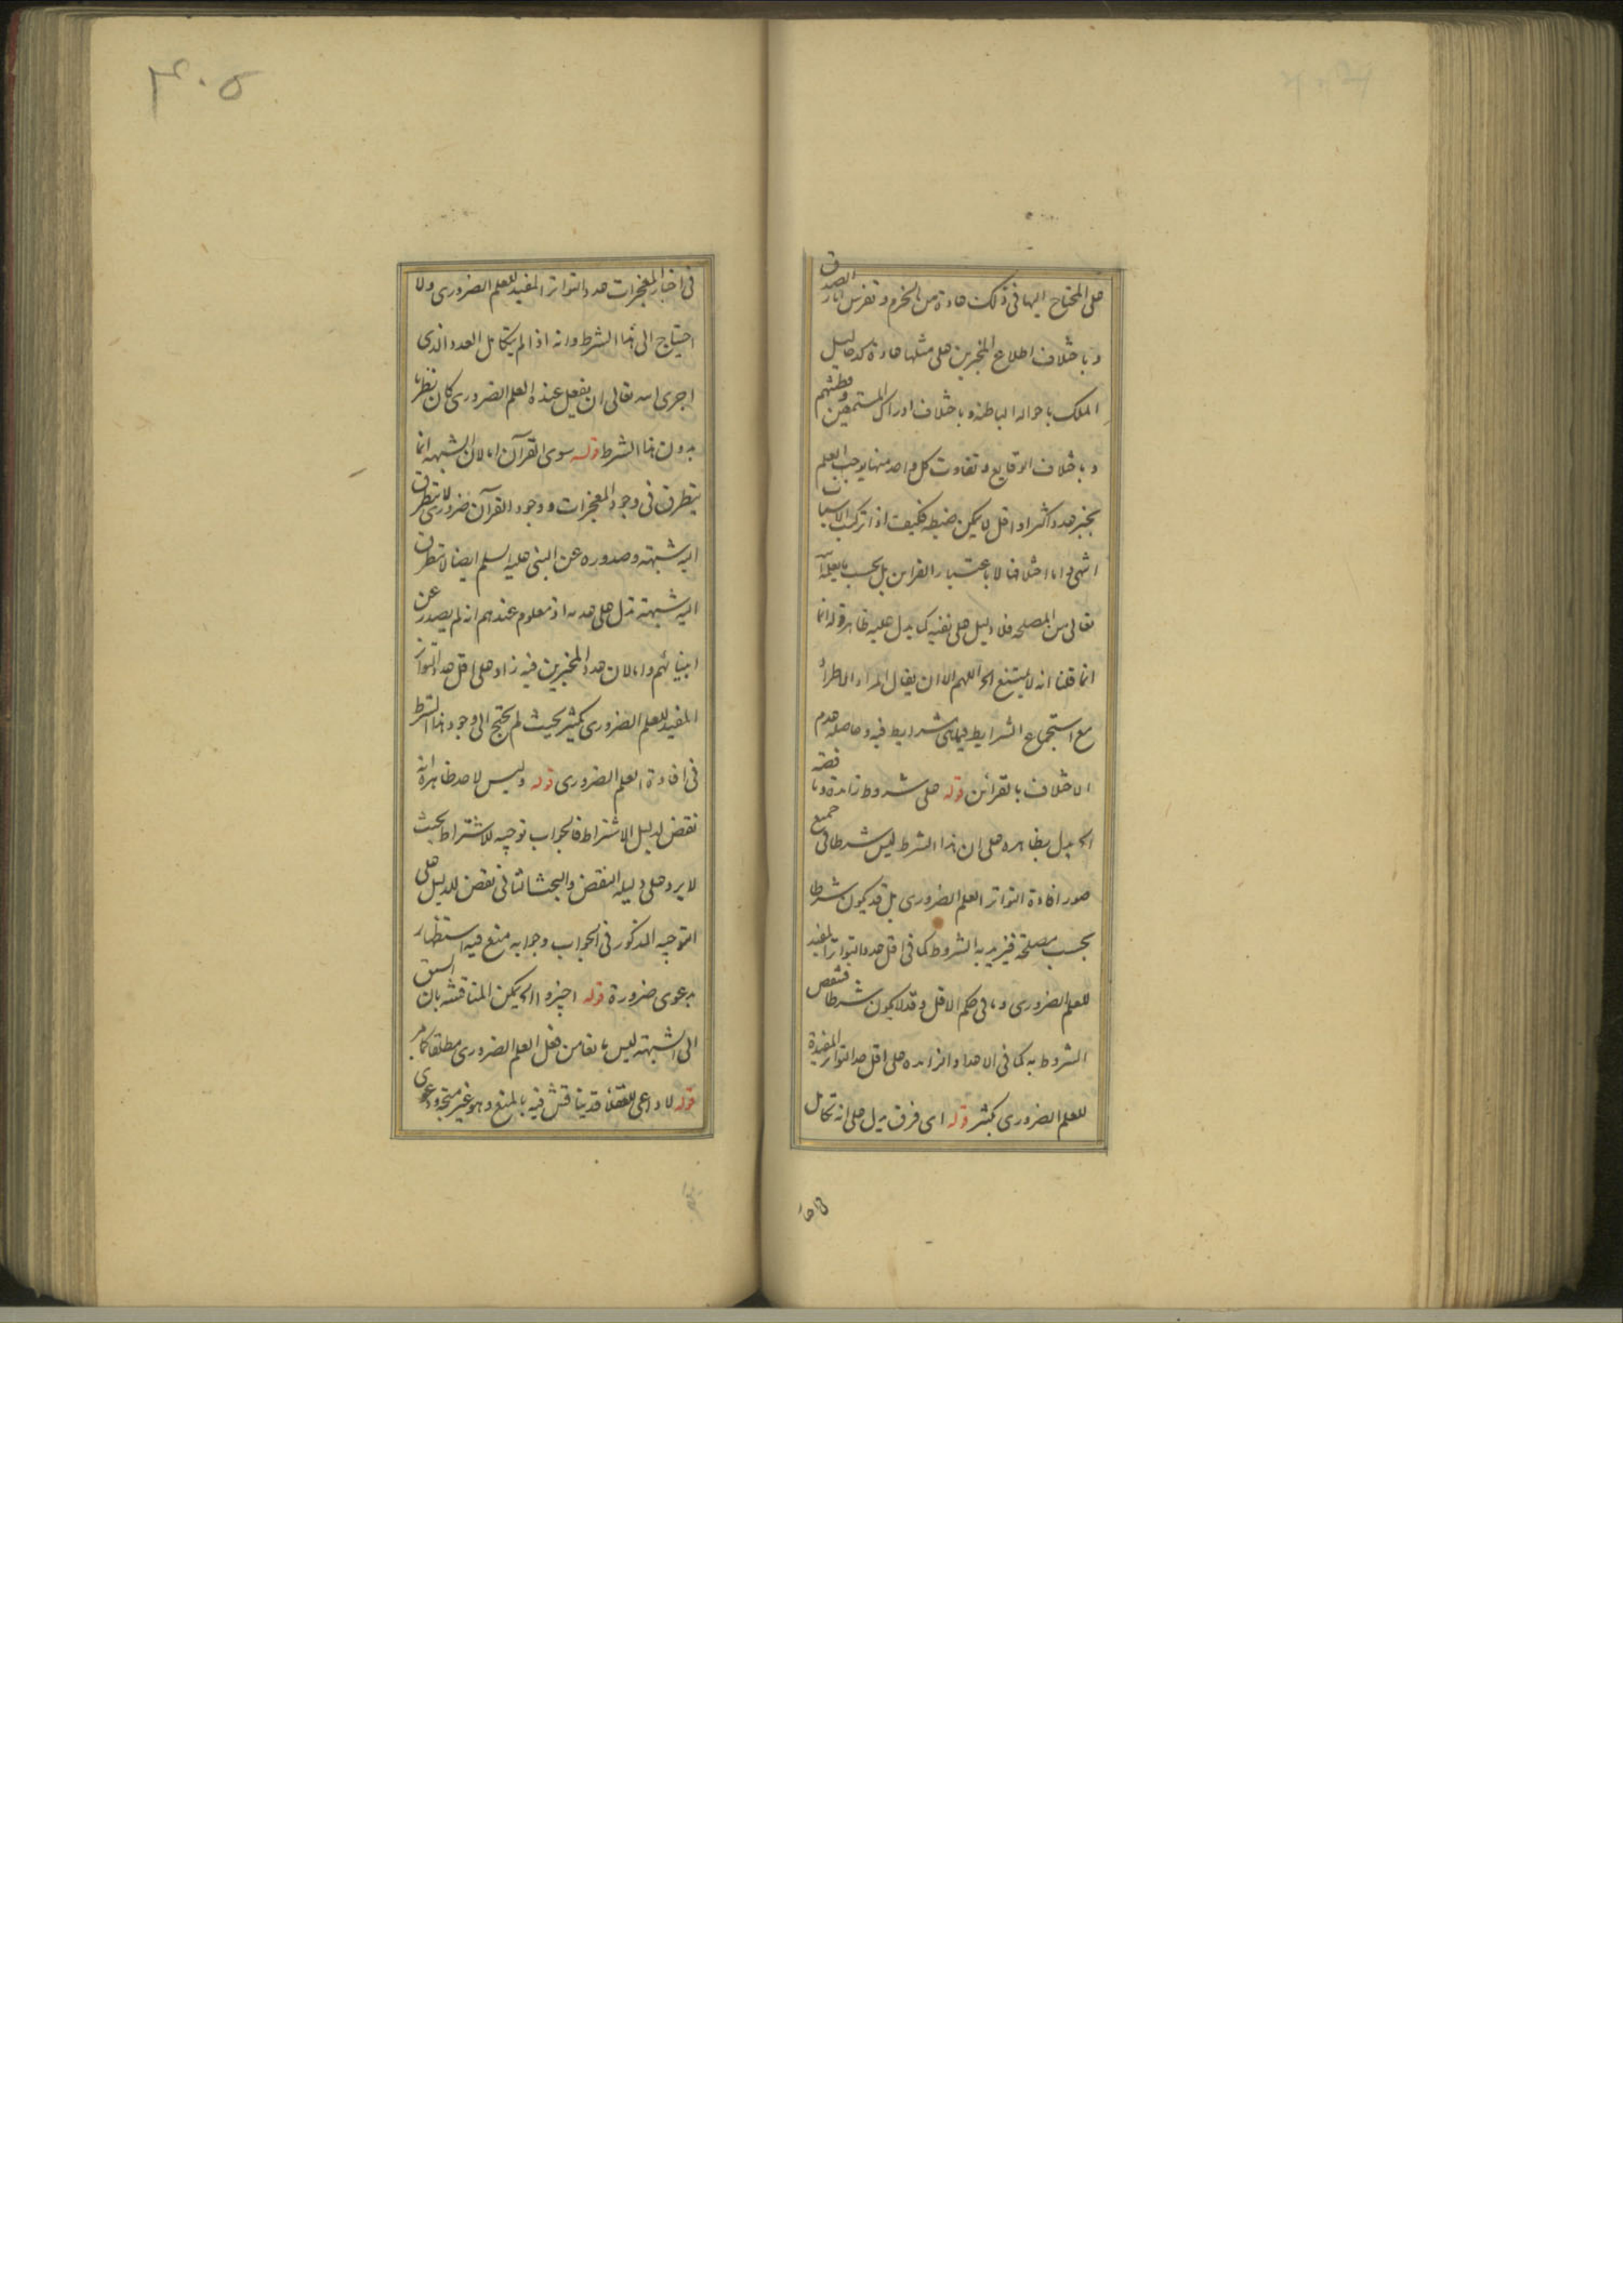 على المحتاج اليها فى ذلك عادة من الحزم وتفرس اثار الصدق
وباختلاف اطلاع المخبرين على مثلها عادة كدخاليل
الملك باحواله الباطنة وباختلاف ادراك المستمعين وفطنتهم
وباختلاف الوقايع وتفاوت كل واحد منها يوجب العلم
بخبر عدد اكثر او اقل لا يمكن ضبطه فكيف اذا تركب الاسباب
انتهى واما اختلافها لا باعتبار القراين بل بحسب ما يعلم الله
تعالى من المصلحة فلا دليل على نفيه كما يدل عليه ظاهر قوله انا
انما قلنا انه لا يمتنع الخ اللهم الا ان يقال المراد الاطراد
مع استجماع الشرايط فيما هى شرايط فيه وحاصله عدم
الاختلاف بالقرائن قوله على شروط زايدة وناقصة
الخ يدل بظاهره على ان هذا الشرط ليس شرطا فى جميع
صور افادة التواتر العلم الضرورى بل قد يكون شرطا
بحسب مصلحة فيزيد به الشروط كما فى اقل عدد التواتر المفيد
للعلم الضرورى وما فى حكم الاقل وقد لا يكون شرطا فتنقص
الشروط به كما فى الاعداد الزايده على اقل عدد التواتر المفيدة
للعلم الضرورى بكثير قوله اى فرق يدل على انه تكامل
فى اخبار المعجزات عدد التواتر المفيد للعلم الضرورى ولا
احتياج الى هذا الشرط وانه اذا لم يتكامل العدد الذى
اجرى الله تعالى ان يفعل عنده العلم الضرورى كان نظريا
بدون هذا الشرط قوله سوى القرآن اما لان الشبهة انما
يتطرق فى وجود المعجزات ووجود القرآن ضرورى لا يتطرق
اليه شبهة وصدوره عن النبى عليه السلم ايضا لا يتطرق
اليه شبهة تدل على عدمه اذ معلوم عندهم انه لم يصدر عن
انبيائهم واما لان عدد المخبرين فيه زاد على اقل عدد التواتر
المفيد للعلم الضرورى بكثير بحيث لم يحتج الى وجود هذا الشرط
فى افادة العلم الضرورى قوله وليس لاحد ظاهره انه
نقض لدليل الاشتراط فالجواب توجيه للاشتراط بحيث
لا يرد على دليله النقض والبحث الثانى نقض للدليل على
التوجيه المذكور فى الجواب وجوابه منع فيه استظهار
بدعوى ضرورة قوله اجيزوا الخ يمكن المناقشة بان السبق
الى الشبهة ليس مانعا من فعل العلم الضرورى مطلقا كما مر
قوله لا داعى للعقلاء قد يناقش فيه بالمنع وهو غير متجه ودعوى